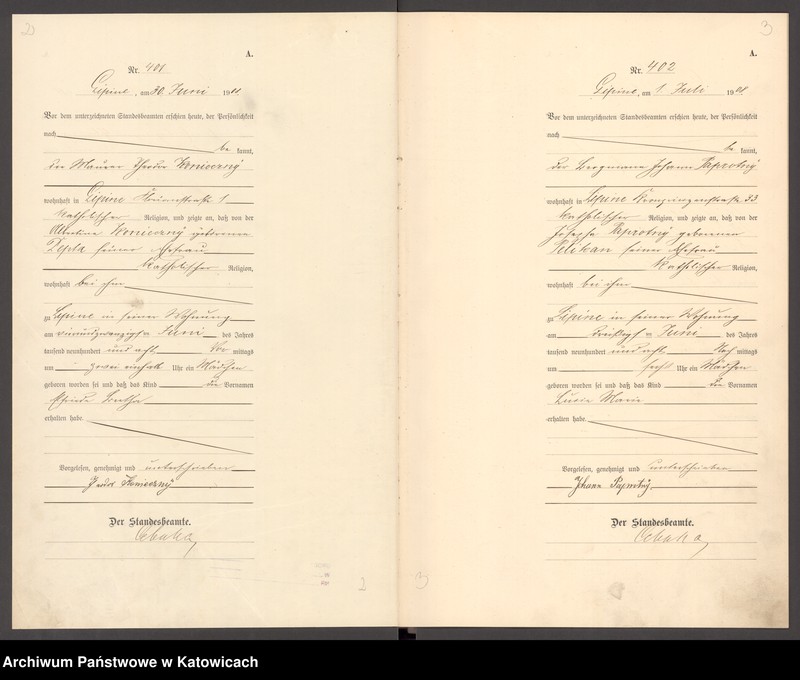 A.
Nr. 401
Lipine, am 30. Juni 1908.
Vor dem unterzeichneten Standesbeamten erschien heute, der Persönlichkeit
nach
be kannt,
der Maurer Theodor Konieczny
wohnhaft in Lipine 1
katholischer Religion, und zeigte an, daß von der
Albertine Konieczny geborenen
Depta seiner Ehefrau
katholischer Religion,
wohnhaft bei ihm
zu Lipine in seiner Wohnung
am vierundzwanzigsten Juni des Jahres
tausend neunhundert und acht Vor mittags
um zwei einhalb Uhr ein Mädchen
geboren worden sei und daß das Kind die Vornamen
Bertha
erhalten habe.
Vorgelesen, genehmigt und unterschrieben
Konieczny
Der Standesbeamte.
2
A.
Nr. 402
Lipine, am 1. Juli 1908.
Vor dem unterzeichneten Standesbeamten erschien heute, der Persönlichkeit
nach
be kannt,
der Bergmann Johann Paprotny
wohnhaft in Lipine 33
katholischer Religion, und zeigte an, daß von der
Josepha Paprotny geborenen
Pelikan seiner Ehefrau
katholischer Religion,
wohnhaft bei ihm
zu Lipine in seiner Wohnung
am dreißigsten Juni des Jahres
tausend neunhundert und acht Nach mittags
um sechs Uhr ein Mädchen
geboren worden sei und daß das Kind die Vornamen
Lucie Marie
erhalten habe.
Vorgelesen, genehmigt und unterschrieben
Johann Paprotny
Der Standesbeamte.
3
Archiwum Państwowe w Katowicach